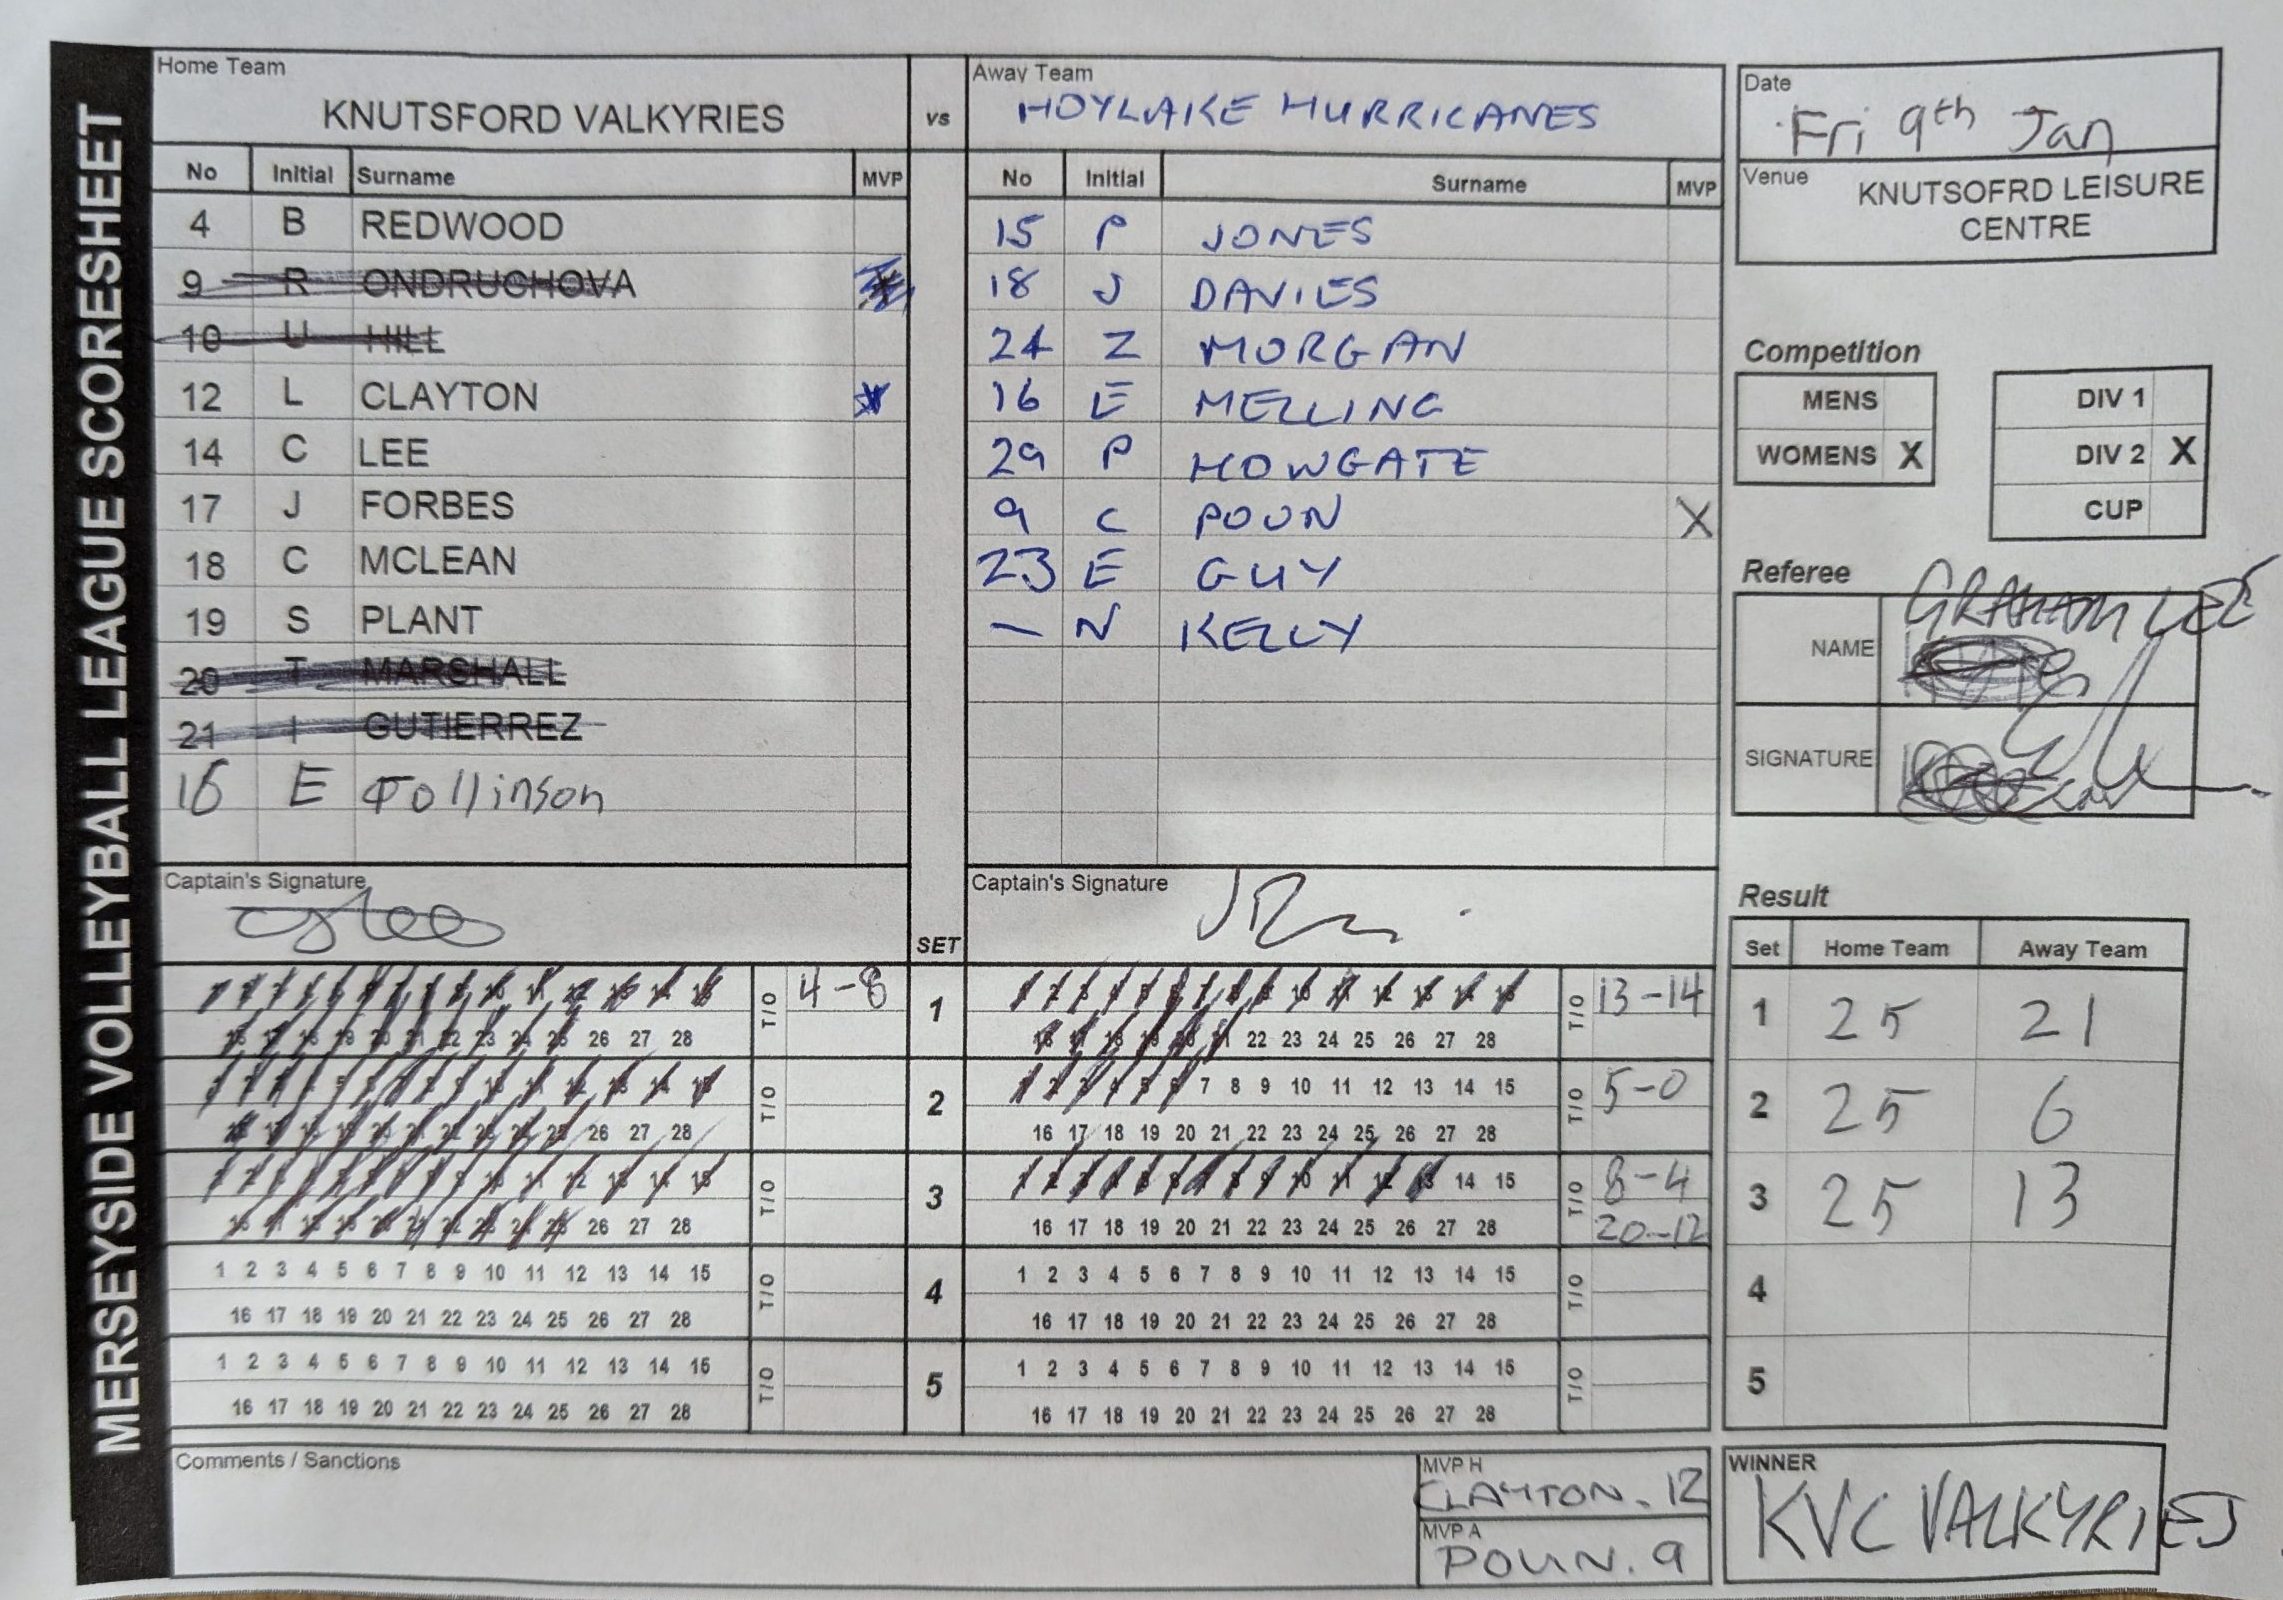 MERSEYSIDE VOLLEYBALL LEAGUE SCORESHEET
Home Team
KNUTSFORD VALKYRIES
vs
Away Team
HOYLAKE HURRICANES
No Initial Surname MVP
4 B REDWOOD
9 R ONDRUCHOVA
10 U HILL
12 L CLAYTON
14 C LEE
17 J FORBES
18 C MCLEAN
19 S PLANT
20 T MARSHALL
21 I GUTIERREZ
16 E Tollinson
No Initial Surname MVP
15 P JONES
18 J DAVIES
24 Z MORGAN
16 E MELLING
29 P HOWGATE
9 C POUN X
23 E GUY
— N KELLY
Date
Fri 9th Jan
Venue
KNUTSOFRD LEISURE
CENTRE
Competition
MENS
WOMENS X
DIV 1
DIV 2 X
CUP
Referee
NAME GRAHAM LEE
SIGNATURE
Captain's Signature
SET
Captain's Signature
1 2 3 4 5 6 7 8 9 10 11 12 13 14 15 T/O 4-8 1 1 2 3 4 5 6 7 8 9 10 11 12 13 14 15 T/O 13-14
16 17 18 19 20 21 22 23 24 25 26 27 28 16 17 18 19 20 21 22 23 24 25 26 27 28
1 2 3 4 5 6 7 8 9 10 11 12 13 14 15 T/O 2 1 2 3 4 5 6 7 8 9 10 11 12 13 14 15 T/O 5-0
16 17 18 19 20 21 22 23 24 25 26 27 28 16 17 18 19 20 21 22 23 24 25 26 27 28
1 2 3 4 5 6 7 8 9 10 11 12 13 14 15 T/O 3 1 2 3 4 5 6 7 8 9 10 11 12 13 14 15 T/O 8-4
16 17 18 19 20 21 22 23 24 25 26 27 28 16 17 18 19 20 21 22 23 24 25 26 27 28 20-12
1 2 3 4 5 6 7 8 9 10 11 12 13 14 15 T/O 4 1 2 3 4 5 6 7 8 9 10 11 12 13 14 15 T/O
16 17 18 19 20 21 22 23 24 25 26 27 28 16 17 18 19 20 21 22 23 24 25 26 27 28
1 2 3 4 5 6 7 8 9 10 11 12 13 14 15 T/O 5 1 2 3 4 5 6 7 8 9 10 11 12 13 14 15 T/O
16 17 18 19 20 21 22 23 24 25 26 27 28 16 17 18 19 20 21 22 23 24 25 26 27 28
Result
Set Home Team Away Team
1 25 21
2 25 6
3 25 13
4
5
Comments / Sanctions
MVP H
CLAYTON. 12
MVP A
POUN. 9
WINNER
KVC VALKYRIES